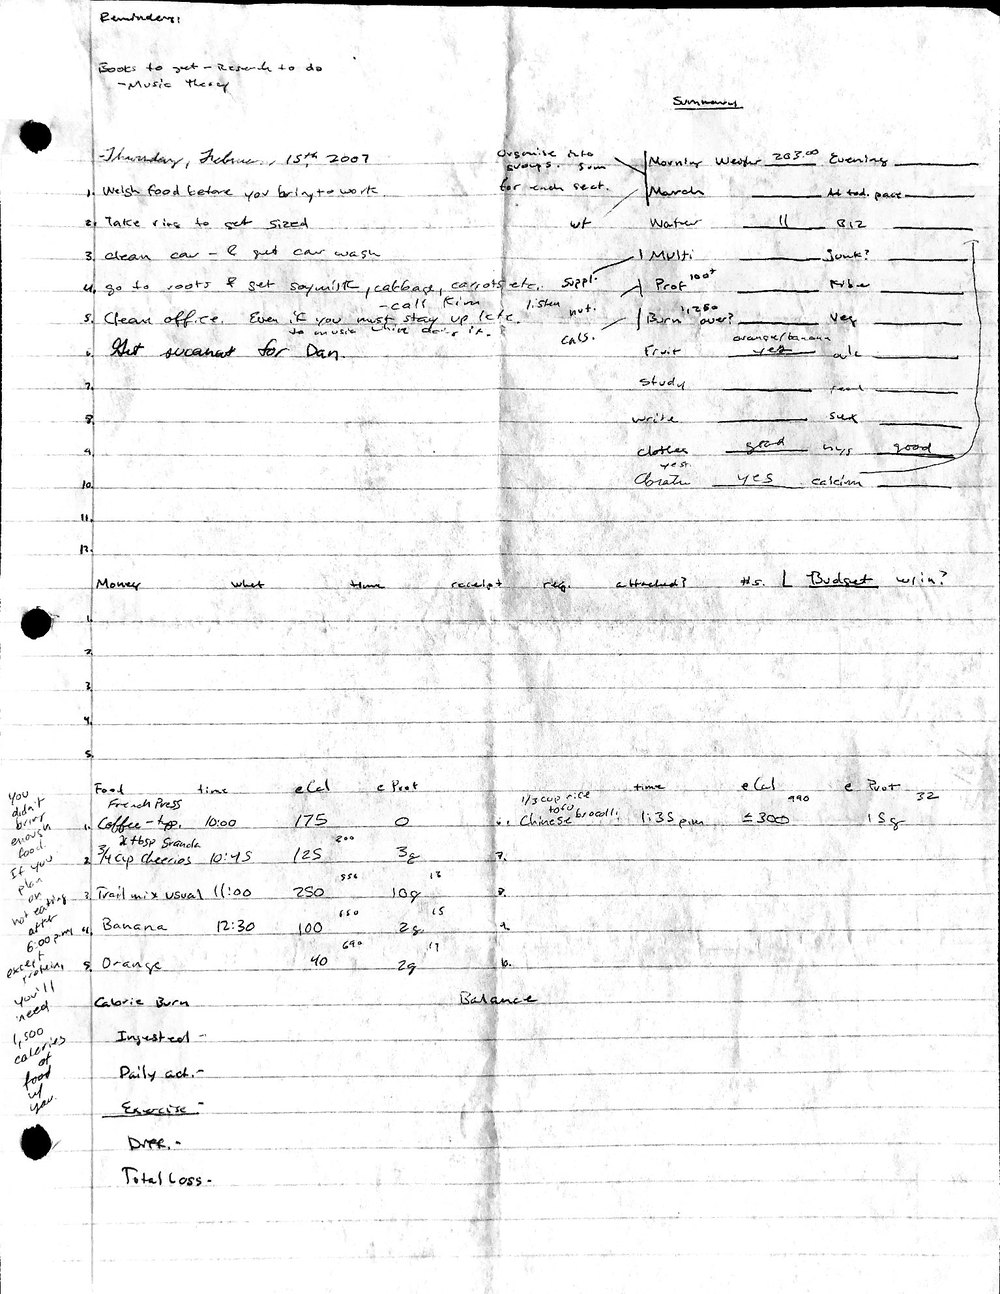 Reminders:
Books to get - Research to do
- Music theory
Summary
- Thursday, February 15th 2007
Organize into
groups. Sum
for each sect.
Morning Weight 203.00 Evening
1. Weigh food before you bring to work
March At tod. pace
2. Take ring to get sized
wt Water 11 B12
3. clean car - & get car wash
Multi junk?
4. go to roots & get soymilk, cabbage, carrots etc.
suppl. Prot 100+
- call Kim
5. Clean office. Even if you must stay up late. listen
to music while doing it.
nut.
cals.
Burn 1,250 over? Veg
6. Get sucanat for Dan.
Fruit orange/banana yes
7.
study read
8.
write sex
9.
clothes good hys good
yest.
10.
yes calcium
11.
12.
Money what time receipt req. attached? #s. | Budget w/in?
1.
2.
3.
4.
5.
Food time eCal eProt
time eCal eProt
French Press
1. Coffee - typ. 10:00 175 0
1/3 cup rice
tofu
Chinese brocolli 1:35 pm ≤300 990 15g 32
2 tbsp Granola
2. 3/4 cup Cheerios 10:45 125 200 3g
7.
3. Trail mix usual 11:00 250 550 10g 13
8.
4. Banana 12:30 100 650 2g 15
9.
5. Orange 40 690 2g 17
Calorie Burn Balance
Ingested -
Daily act. -
Exercise -
Diff. -
Total Loss -
You
didn't
bring
enough
food.
If you
plan
on
not eating
after
6:00 pm
except
protein,
you'll
need
1,500
calories
of
food
w/
you.